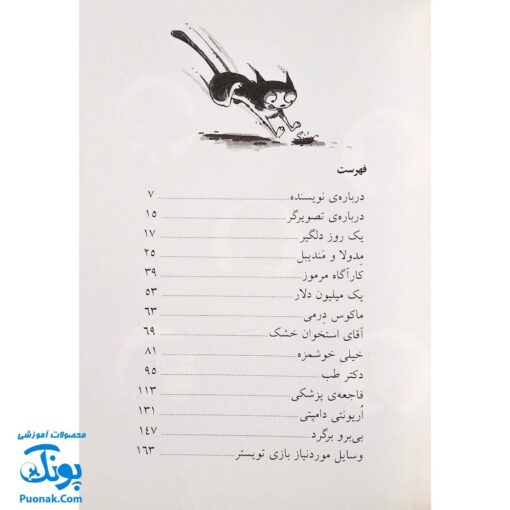 فهرست
درباره‌ی نویسنده ........ ۷
درباره‌ی تصویرگر ........ ۱۵
یک روز دلگیر ........ ۱۷
مِدولا و مَندیبل ........ ۲۵
کارآگاه مرموز ........ ۳۹
یک میلیون دلار ........ ۵۳
ماکوس دِرمی ........ ۶۳
آقای استخوان خشک ........ ۶۹
خیلی خوشمزه ........ ۸۱
دکتر طب ........ ۹۵
فاجعه‌ی پزشکی ........ ۱۱۳
اُریونتی دامپتی ........ ۱۳۱
بی‌برو برگرد ........ ۱۴۷
وسایل موردنیاز بازی تویستر ........ ۱۶۳
محصولات آموزشی
پونک
Puonak.Com